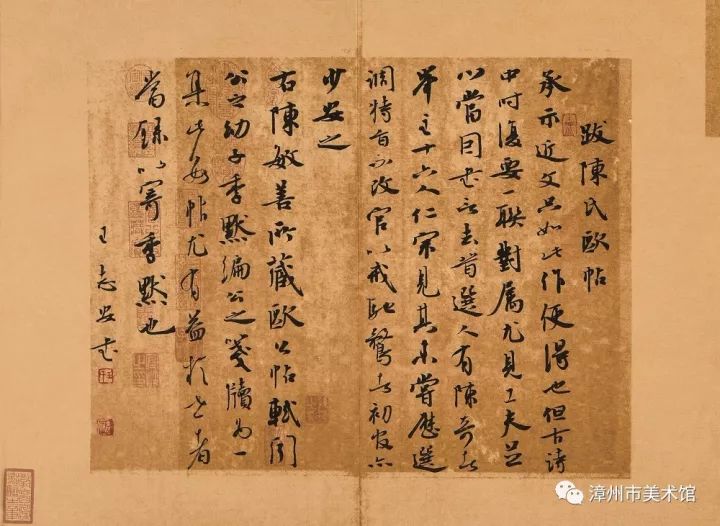 跋陳氏歐帖
承示近文只如此作便得也但古詩
中時復要一聯對屬尤見工夫並
以當因書言去首選人有陳奇者
舉主十六人仁宗見其未嘗歷選
調特旨不改官以戒馳騖者初官亦
少安之
右陳敏善所藏歐公帖軾聞
公之幼子季默編公之箋牘為一
集此數帖尤有益於世者
當錄以寄季默也
王志安書
漳州市美术馆